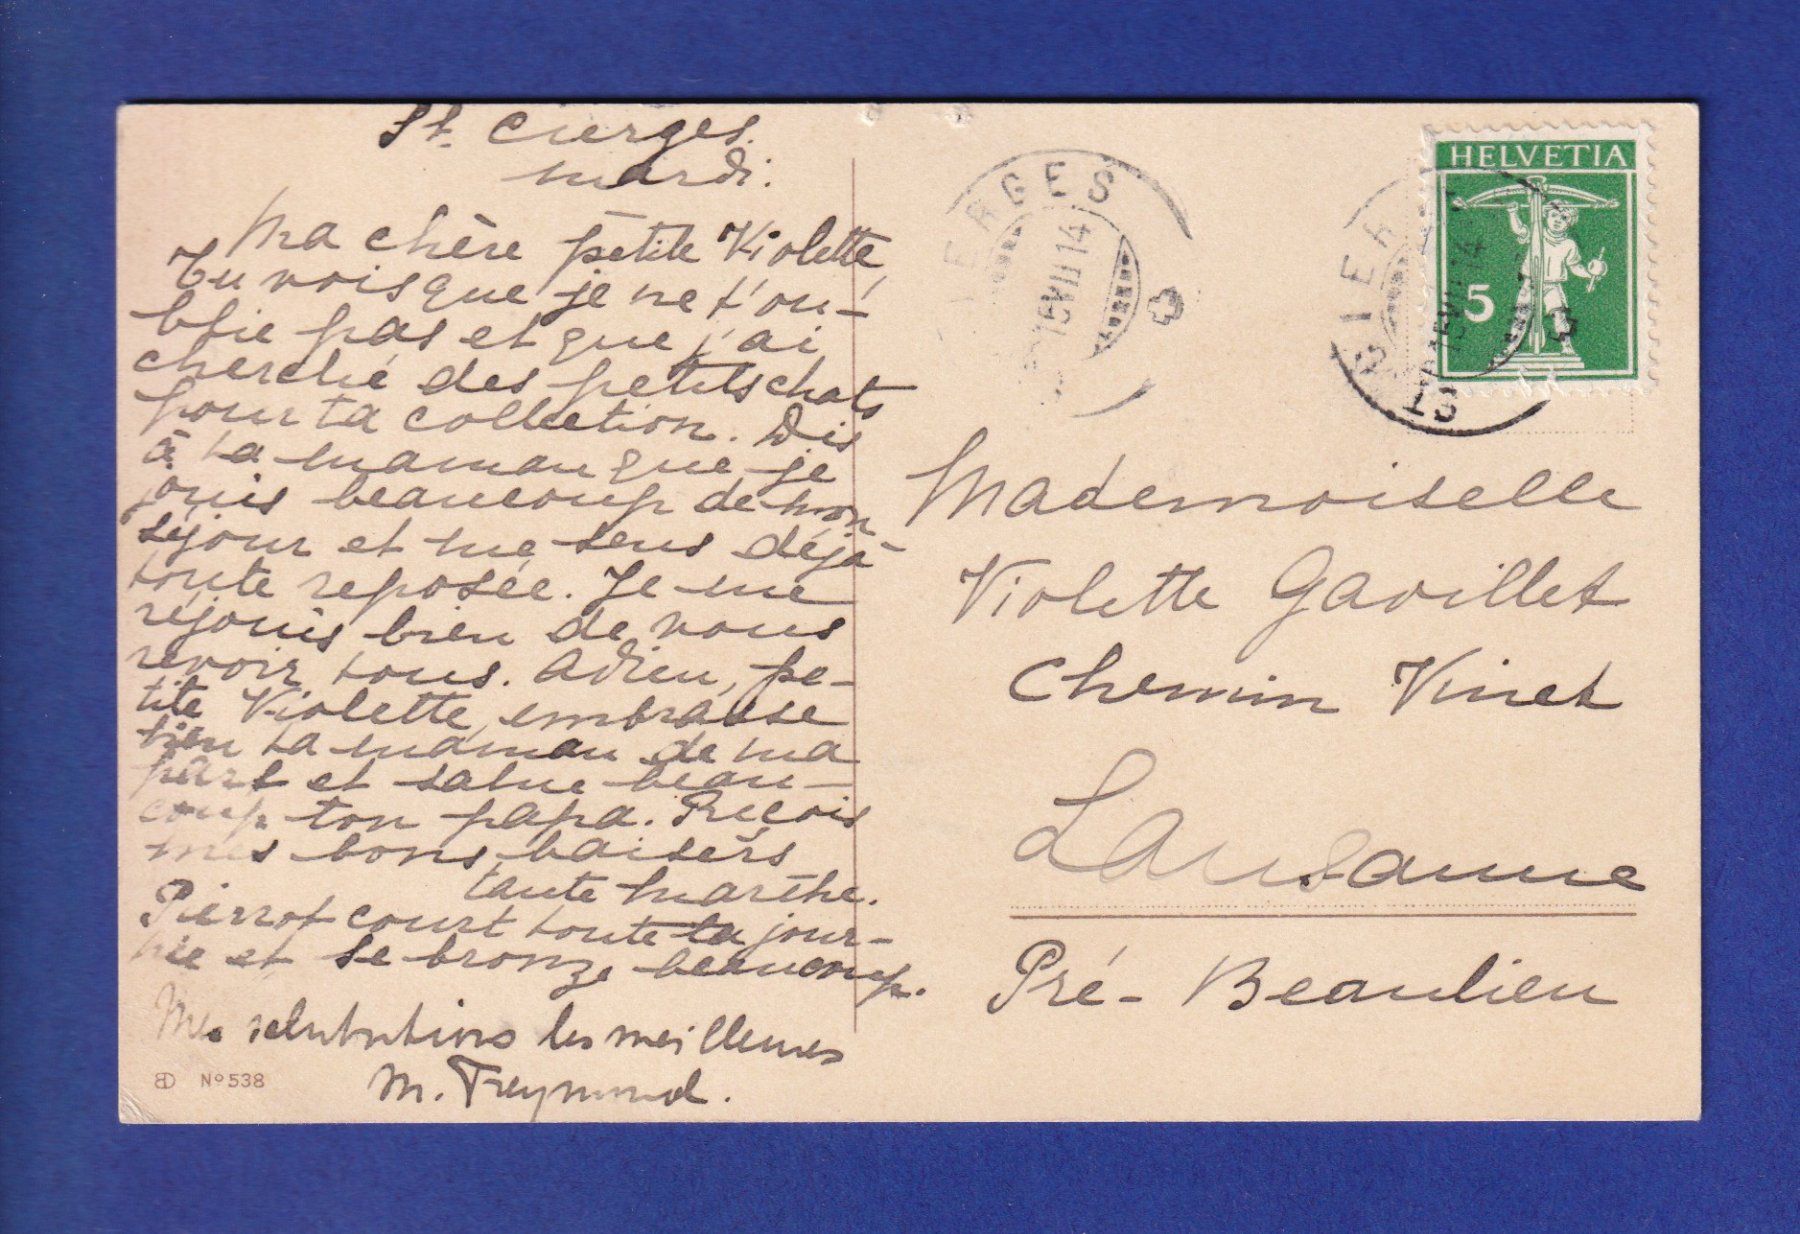 St. Cierges.
mardi.
Ma chère petite Violette,
Tu vois que je ne t'ou-
blie pas et que j'ai
cherché des petits chats
pour ta collection. Dis
à ta maman que je
jouis beaucoup de mon
séjour et me sens déjà
toute reposée. Je me
réjouis bien de vous
revoir tous. Adieu, pe-
tite Violette, embrasse
bien ta maman de ma
part et salue beau-
coup ton papa. Reçois
mes bons baisers
tante Marthe.
Pierrot court toute la jour-
née et se bronze beaucoup.
Mes salutations les meilleures
M. Freymond.
BD No 538
IERGES
15 VII 14
HELVETIA
5
ST CIER
15 VII 14
Mademoiselle
Violette Gavillet
Chemin Vinet
Lausanne
Pré-Beaulieu